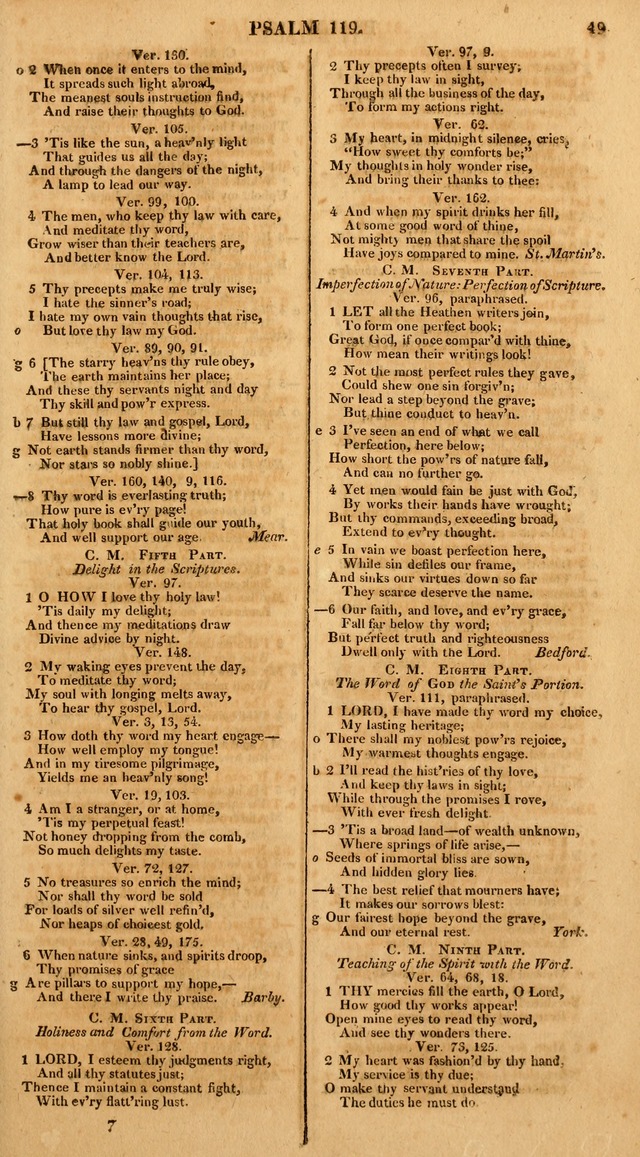 PSALM 119. 49
Ver. 130.
o 2 When once it enters to the mind,
It spreads such light abroad,
The meanest souls instruction find,
And raise their thoughts to God.
Ver. 105.
—3 'Tis like the sun, a heav'nly light
That guides us all the day;
And through the dangers of the night,
A lamp to lead our way.
Ver. 99, 100.
4 The men, who keep thy law with care,
And meditate thy word,
Grow wiser than their teachers are,
And better know the Lord.
Ver. 104, 113.
5 Thy precepts make me truly wise;
I hate the sinner's road;
I hate my own vain thoughts that rise,
o But love thy law my God.
Ver. 89, 90, 91.
g 6 [The starry heav'ns thy rule obey,
The earth maintains her place;
And these thy servants night and day
Thy skill and pow'r express.
b 7 But still thy law and gospel, Lord,
Have lessons more divine;
g Not earth stands firmer than thy word,
Nor stars so nobly shine.]
Ver. 160, 140, 9, 116.
—8 Thy word is everlasting truth;
How pure is ev'ry page!
That holy book shall guide our youth,
And well support our age. Mear.
C. M. Fifth Part.
Delight in the Scriptures.
Ver. 97.
1 O HOW I love thy holy law!
'Tis daily my delight;
And thence my meditations draw
Divine advice by night.
Ver. 148.
2 My waking eyes prevent the day,
To meditate thy word;
My soul with longing melts away,
To hear thy gospel, Lord.
Ver. 3, 13, 54.
3 How doth thy word my heart engage—
How well employ my tongue!
And in my tiresome pilgrimage,
Yields me an heav'nly song!
Ver. 19, 103.
4 Am I a stranger, or at home,
'Tis my perpetual feast!
Not honey dropping from the comb,
So much delights my taste.
Ver. 72, 127.
5 No treasures so enrich the mind;
Nor shall thy word be sold
For loads of silver well refin'd,
Nor heaps of choicest gold.
Ver. 28, 49, 175.
6 When nature sinks, and spirits droop,
Thy promises of grace
g Are pillars to support my hope,—
And there I write thy praise. Barby.
C. M. Sixth Part.
Holiness and Comfort from the Word.
Ver. 128.
1 LORD, I esteem thy judgments right,
And all thy statutes just;
Thence I maintain a constant fight,
With ev'ry flatt'ring lust.
7
Ver. 97, 9.
2 Thy precepts often I survey;
I keep thy law in sight,
Through all the business of the day,
To form my actions right.
Ver. 62.
3 My heart, in midnight silence, cries,
"How sweet thy comforts be;"
My thoughts in holy wonder rise,
And bring their thanks to thee:
Ver. 162.
4 And when my spirit drinks her fill,
At some good word of thine,
Not mighty men that share the spoil
Have joys compared to mine. St. Martin's.
C. M. Seventh Part.
Imperfection of Nature: Perfection of Scripture.
Ver. 96, paraphrased.
1 LET all the Heathen writers join,
To form one perfect book;
Great God, if once compar'd with thine,
How mean their writings look!
2 Not the most perfect rules they gave,
Could shew one sin forgiv'n;
Nor lead a step beyond the grave;
But thine conduct to heav'n.
e 3 I've seen an end of what we call
Perfection, here below;
How short the pow'rs of nature fall,
And can no further go.
4 Yet men would fain be just with God,
By works their hands have wrought;
But thy commands, exceeding broad,
Extend to ev'ry thought.
e 5 In vain we boast perfection here,
While sin defiles our frame,
And sinks our virtues down so far
They scarce deserve the name.
—6 Our faith, and love, and ev'ry grace,
Fall far below thy word;
But perfect truth and righteousness
Dwell only with the Lord. Bedford.
C. M. Eighth Part.
The Word of God the Saint's Portion.
Ver. 111, paraphrased.
1 LORD, I have made thy word my choice,
My lasting heritage;
o There shall my noblest pow'rs rejoice,
My warmest thoughts engage.
b 2 I'll read the hist'ries of thy love,
And keep thy laws in sight;
While through the promises I rove,
With ever fresh delight.
—3 'Tis a broad land—of wealth unknown,
Where springs of life arise,—
o Seeds of immortal bliss are sown,
And hidden glory lies.
—4 The best relief that mourners have;
It makes our sorrows blest:
g Our fairest hope beyond the grave,
And our eternal rest. York.
C. M. Ninth Part.
Teaching of the Spirit with the Word.
Ver. 64, 68, 18.
1 THY mercies fill the earth, O Lord,
How good thy works appear!
Open mine eyes to read thy word,
And see thy wonders there.
Ver. 73, 125.
2 My heart was fashion'd by thy hand,
My service is thy due;
O make thy servant understand
The duties he must do.